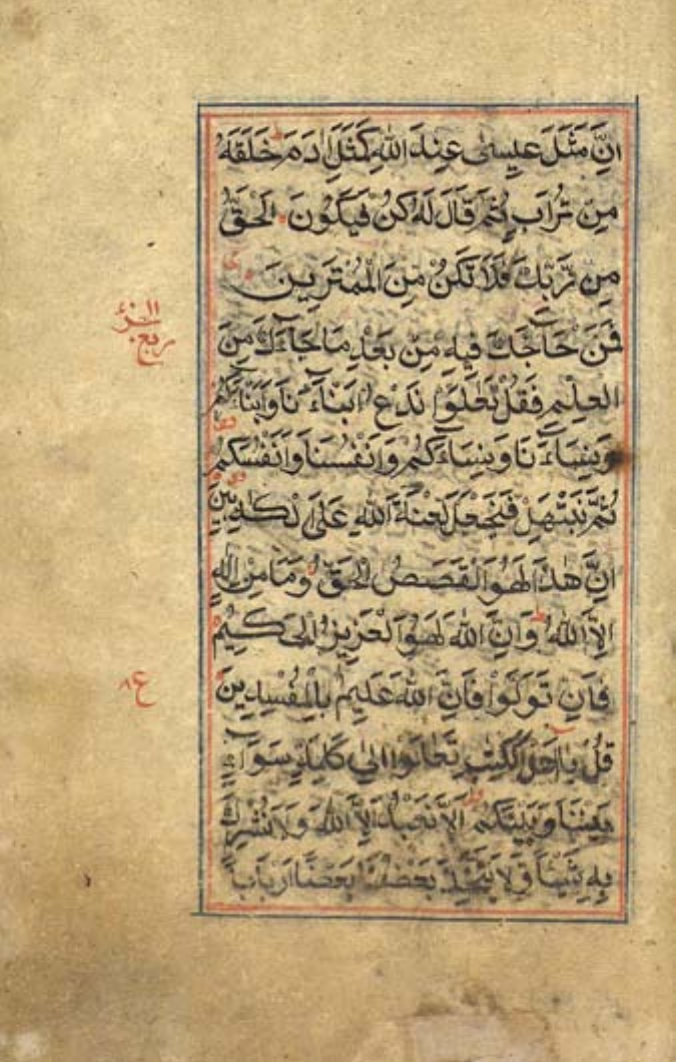 اِنَّ مَثَلَ عِيسٰى عِنْدَ اللهِ كَمَثَلِ اٰدَمَ خَلَقَهُ
مِنْ تُرَابٍ ثُمَّ قَالَ لَهُ كُنْ فَيَكُونَ اَلْحَقُّ
مِنْ رَّبِّكَ فَلَا تَكُنْ مِّنَ الْمُمْتَرِينَ
فَمَنْ حَاجَّكَ فِيهِ مِنْ بَعْدِ مَا جَاءَكَ مِنَ
الْعِلْمِ فَقُلْ تَعَالَوْا نَدْعُ اَبْنَاءَنَا وَاَبْنَاءَكُمْ
وَنِسَاءَنَا وَنِسَاءَكُمْ وَاَنْفُسَنَا وَاَنْفُسَكُمْ
ثُمَّ نَبْتَهِلْ فَنَجْعَلْ لَعْنَةَ اللهِ عَلَى الْكٰذِبِينَ
اِنَّ هٰذَا لَهُوَ الْقَصَصُ الْحَقُّ وَمَا مِنْ اِلٰهٍ
اِلَّا اللهُ وَاِنَّ اللهَ لَهُوَ الْعَزِيزُ الْحَكِيمُ
فَاِنْ تَوَلَّوْا فَاِنَّ اللهَ عَلِيمٌ بِالْمُفْسِدِينَ
قُلْ يَا اَهْلَ الْكِتٰبِ تَعَالَوْا اِلٰى كَلِمَةٍ سَوَاءٍ
بَيْنَنَا وَبَيْنَكُمْ اَلَّا نَعْبُدَ اِلَّا اللهَ وَلَا نُشْرِكَ
بِهِ شَيْئًا وَلَا يَتَّخِذَ بَعْضُنَا بَعْضًا اَرْبَابًا
ربع
ع ٨